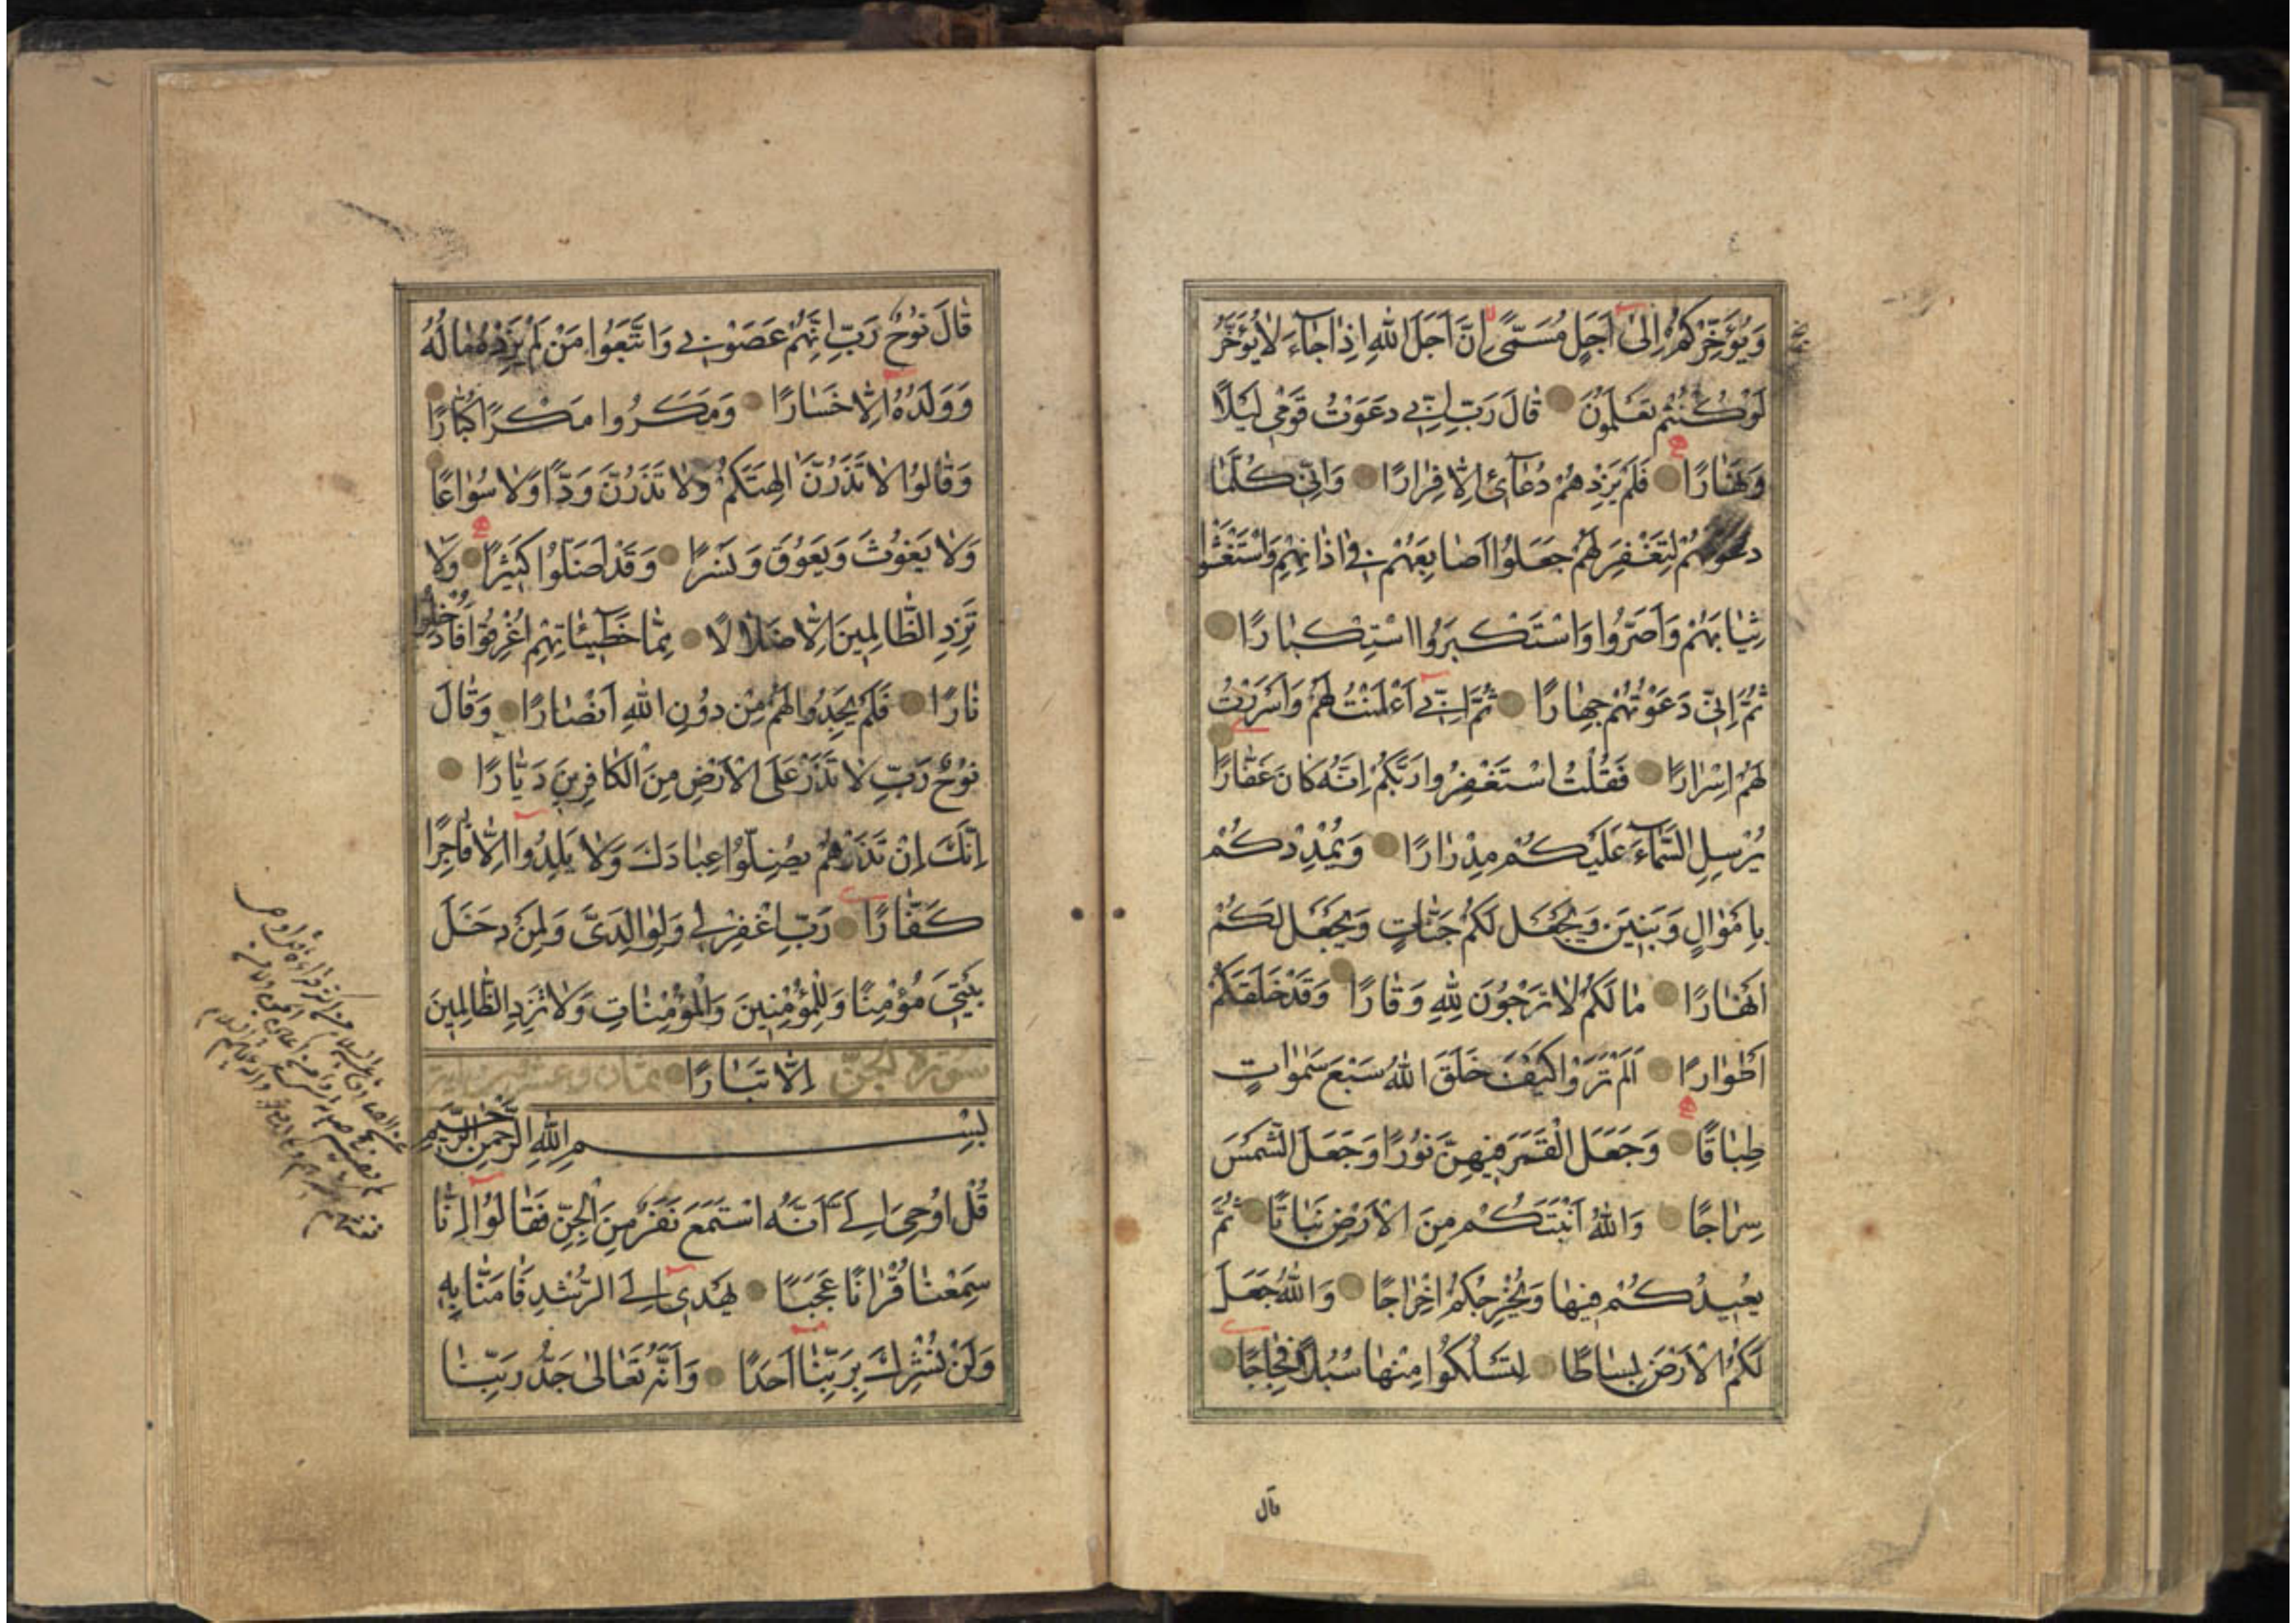 وَيُؤَخِّرْكُمْ اِلىٰ اَجَلٍ مُسَمًّى اِنَّ اَجَلَ اللهِ اِذَا جَاءَ لَا يُؤَخَّرُ
لَوْ كُنْتُمْ تَعْلَمُونَ قَالَ رَبِّ اِنِّي دَعَوْتُ قَوْمِي لَيْلًا
وَنَهَارًا فَلَمْ يَزِدْهُمْ دُعَائِي اِلَّا فِرَارًا وَاِنِّي كُلَّمَا
دَعَوْتُهُمْ لِتَغْفِرَ لَهُمْ جَعَلُوا اَصَابِعَهُمْ فِي اٰذَانِهِمْ وَاسْتَغْشَوْا
ثِيَابَهُمْ وَاَصَرُّوا وَاسْتَكْبَرُوا اسْتِكْبَارًا
ثُمَّ اِنِّي دَعَوْتُهُمْ جِهَارًا ثُمَّ اِنِّي اَعْلَنْتُ لَهُمْ وَاَسْرَرْتُ
لَهُمْ اِسْرَارًا فَقُلْتُ اسْتَغْفِرُوا رَبَّكُمْ اِنَّهُ كَانَ غَفَّارًا
يُرْسِلِ السَّمَاءَ عَلَيْكُمْ مِدْرَارًا وَيُمْدِدْكُمْ
بِاَمْوَالٍ وَبَنِينَ وَيَجْعَلْ لَكُمْ جَنَّاتٍ وَيَجْعَلْ لَكُمْ
اَنْهَارًا مَا لَكُمْ لَا تَرْجُونَ لِلّٰهِ وَقَارًا وَقَدْ خَلَقَكُمْ
اَطْوَارًا اَلَمْ تَرَوْا كَيْفَ خَلَقَ اللهُ سَبْعَ سَمٰوَاتٍ
طِبَاقًا وَجَعَلَ الْقَمَرَ فِيهِنَّ نُورًا وَجَعَلَ الشَّمْسَ
سِرَاجًا وَاللهُ اَنْبَتَكُمْ مِنَ الْاَرْضِ نَبَاتًا ثُمَّ
يُعِيدُكُمْ فِيهَا وَيُخْرِجُكُمْ اِخْرَاجًا وَاللهُ جَعَلَ
لَكُمُ الْاَرْضَ بِسَاطًا لِتَسْلُكُوا مِنْهَا سُبُلًا فِجَاجًا
قال
قَالَ نُوحٌ رَبِّ اِنَّهُمْ عَصَوْنِي وَاتَّبَعُوا مَنْ لَمْ يَزِدْهُ مَالُهُ
وَوَلَدُهُ اِلَّا خَسَارًا وَمَكَرُوا مَكْرًا كُبَّارًا
وَقَالُوا لَا تَذَرُنَّ اٰلِهَتَكُمْ وَلَا تَذَرُنَّ وَدًّا وَلَا سُوَاعًا
وَلَا يَغُوثَ وَيَعُوقَ وَنَسْرًا وَقَدْ اَضَلُّوا كَثِيرًا وَلَا
تَزِدِ الظَّالِمِينَ اِلَّا ضَلَالًا مِمَّا خَطِيئَاتِهِمْ اُغْرِقُوا فَاُدْخِلُوا
نَارًا فَلَمْ يَجِدُوا لَهُمْ مِنْ دُونِ اللهِ اَنْصَارًا وَقَالَ
نُوحٌ رَبِّ لَا تَذَرْ عَلَى الْاَرْضِ مِنَ الْكَافِرِينَ دَيَّارًا
اِنَّكَ اِنْ تَذَرْهُمْ يُضِلُّوا عِبَادَكَ وَلَا يَلِدُوا اِلَّا فَاجِرًا
كَفَّارًا رَبِّ اغْفِرْ لِي وَلِوَالِدَيَّ وَلِمَنْ دَخَلَ
بَيْتِيَ مُؤْمِنًا وَلِلْمُؤْمِنِينَ وَالْمُؤْمِنَاتِ وَلَا تَزِدِ الظَّالِمِينَ
اِلَّا تَبَارًا سورة الجن ثمان وعشرون اية
بِسْمِ اللهِ الرَّحْمٰنِ الرَّحِيمِ
قُلْ اُوحِيَ اِلَيَّ اَنَّهُ اسْتَمَعَ نَفَرٌ مِنَ الْجِنِّ فَقَالُوا اِنَّا
سَمِعْنَا قُرْاٰنًا عَجَبًا يَهْدِي اِلَى الرُّشْدِ فَاٰمَنَّا بِهِ
وَلَنْ نُشْرِكَ بِرَبِّنَا اَحَدًا وَاَنَّهُ تَعَالىٰ جَدُّ رَبِّنَا